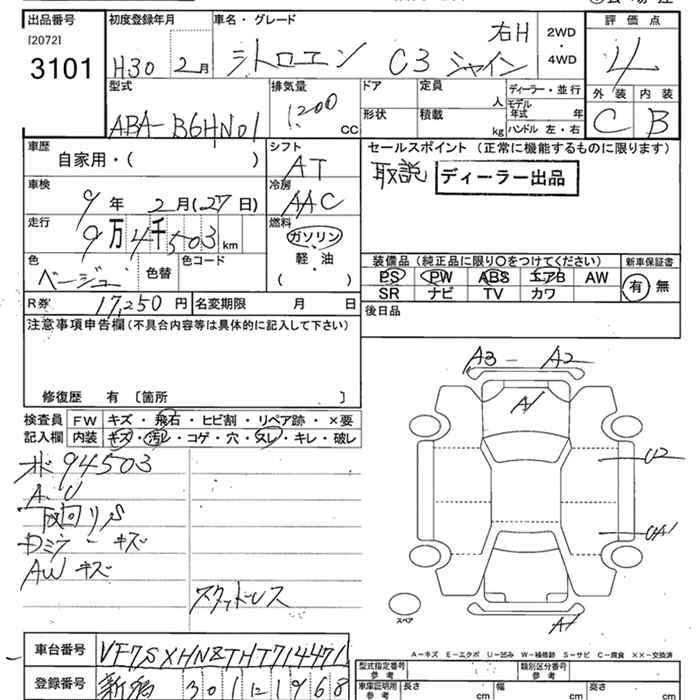 出品番号
[2072]
3101
初度登録年月
H30 2月
車名・グレード
シトロエン C3 シャイン
右H
2WD
・
4WD
評価点
4
型式
ABA-B6HN01
排気量
1200 CC
ドア
形状
定員
人
積載
kg
ディーラー・並行
モデル年式 年
ハンドル 左・右
外装 内装
C B
車歴
自家用・( )
シフト
AT
セールスポイント (正常に機能するものに限ります)
取説 ディーラー出品
車検
9年 2月(27日)
冷房
AAC
走行
9万4千503km
燃料
ガソリン
・
軽・油
( )
色
ベージュ
色替
色コード
装備品 (純正品に限り○をつけてください)
PS PW ABS エアB AW
SR ナビ TV カワ
新車保証書
有 無
R券 17,250円
名変期限 月 日
後日品
注意事項申告欄(不具合内容等は具体的に記入して下さい)
修復歴 有 [箇所 ]
検査員 FW キズ・飛石・ヒビ割・リペア跡・×要
記入欄 内装 キズ・汚レ・コゲ・穴・スレ・キレ・破レ
94503
A、U
下回りS
Dミラーキズ
AWキズ
スタッドレス
A3 - A2
A1
U2
UA1
A1
スペア
A-キズ E-エクボ U-凹み W-補修跡 S-サビ C-腐食 ××-交換済
車台番号 VF7SXHNZTHT714471
登録番号 新潟 301 1968
型式指定番号
参考
類別区分番号
参考
車庫証明用
参考
長さ cm
幅 cm
高さ cm